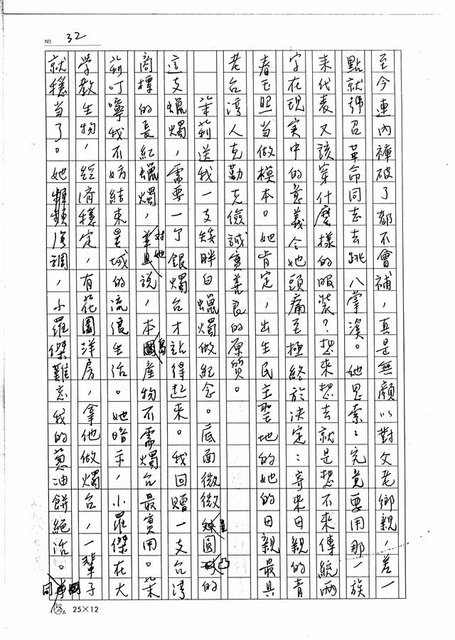 NO. 32
至今連內褲破了都不會補，真是無顏以對父老鄉親，差一
點就號召革命同志去跳八掌溪。他思索：究竟要用那一族
來代表又該穿什麼樣的服裝？想來想去就是想不來傳統兩
字在現實中的意義令她頭痛至極終於決定：寄來田親的青
春玉照當做模本。她肯定，出生民主聖地的她的田親最具
老台灣人克勤克儉誠實善良的原質。
茉莉送我一支矮胖白蠟燭做紀念。底面微微呈圓凸的
這支蠟燭，需要一個銀燭台才站得起來。我回贈一支台灣
商標的長紅蠟燭，對她說，本島產物不需燭台最實用。茉
莉叮嚀我不妨結束星城的流浪生活。她暗示，小羅傑在大
學教生物，經濟穩定，有花園洋房，拿他做燭台，一輩子
就穩當了。她頻頻強調，小羅傑難忘我的蔥油餅絕活。
25×12